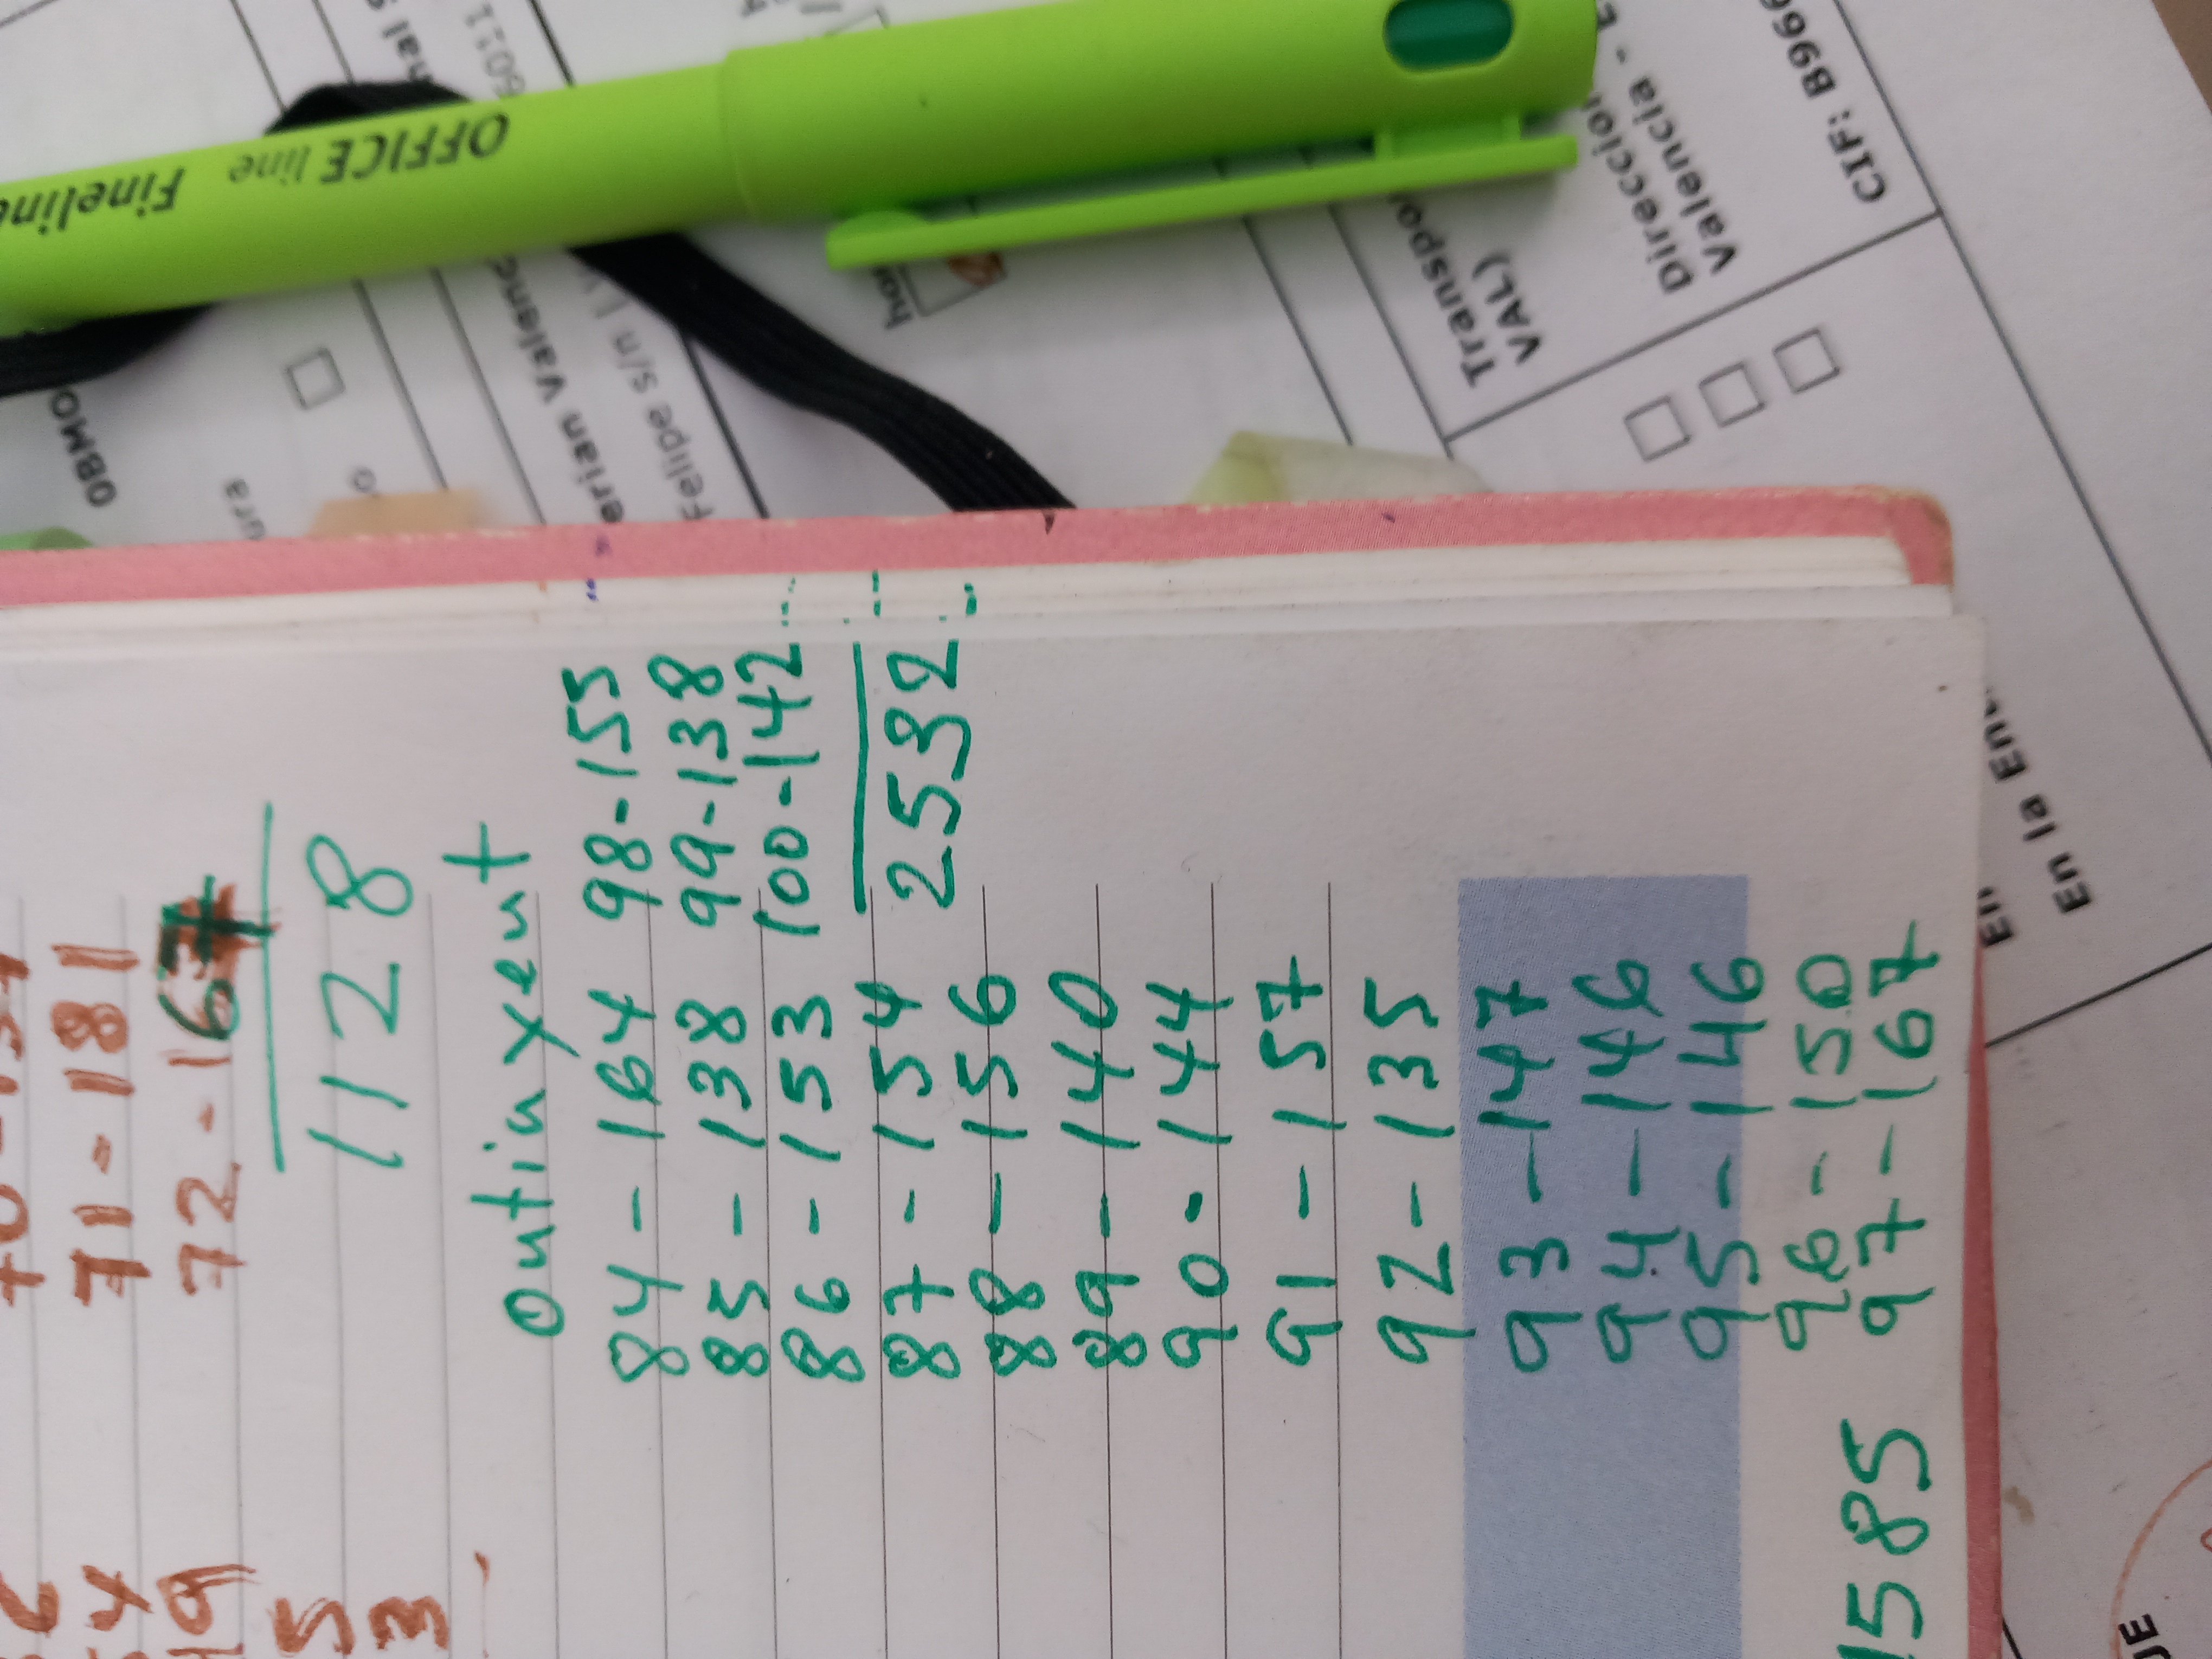 OFFICE line Fineline
CIF: B966
Direccion
Valencia - E
Transpo
VAL)
Felipe s/n | V
erian Valenc
OBMO
ura
En la En
En la En
71-181
72-167
1128
Ontinxent
84-164 98-155
85-138 99-138
86-153 100-142
87-154
2532
88-156
89-140
90-144
91-157
92-135
93-147
94-146
95-146
96-150
97-167
1585